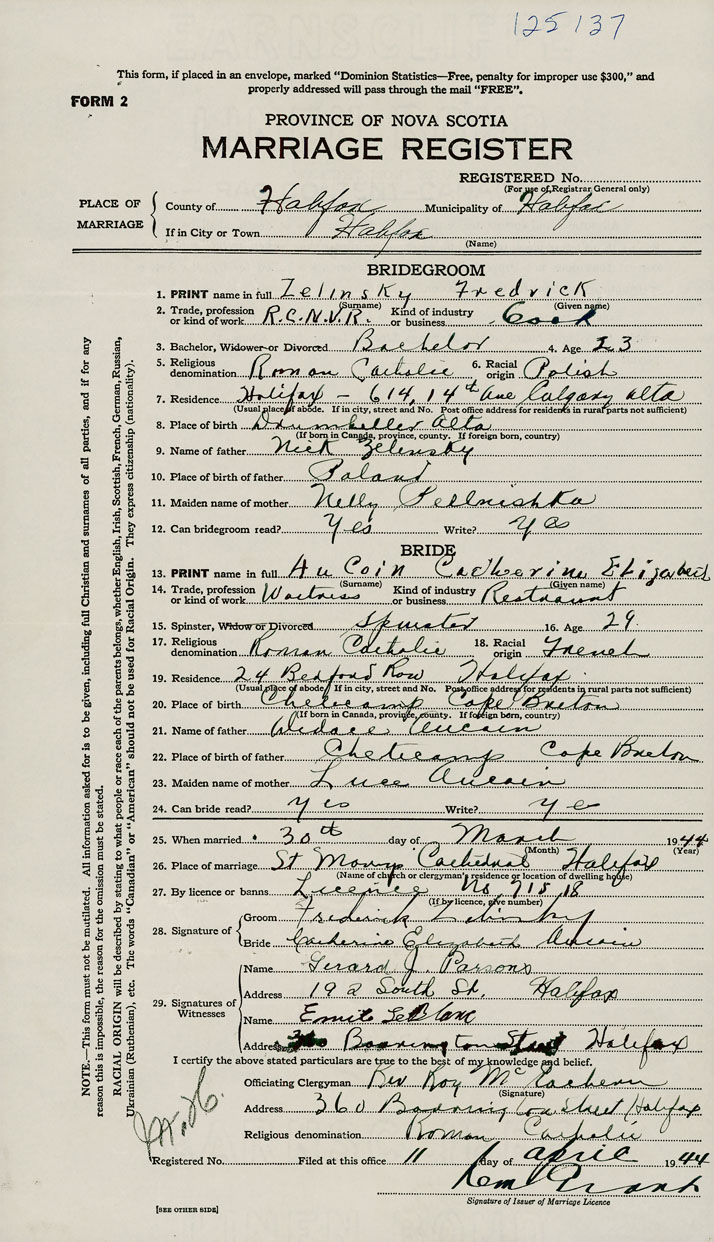 125137
This form, if placed in an envelope, marked "Dominion Statistics—Free, penalty for improper use $300," and
properly addressed will pass through the mail "FREE".
FORM 2
PROVINCE OF NOVA SCOTIA
MARRIAGE REGISTER
REGISTERED No.
(For use of Registrar General only)
PLACE OF MARRIAGE
County of Halifax Municipality of Halifax
If in City or Town Halifax
(Name)
BRIDEGROOM
1. PRINT name in full Zelinsky Fredrick
(Surname) (Given name)
2. Trade, profession or kind of work R.C.N.V.R. Kind of industry or business Cook
3. Bachelor, Widower or Divorced Bachelor 4. Age 23
5. Religious denomination Roman Catholic 6. Racial origin Polish
7. Residence Halifax - 614, 14th Ave Calgary Alta
(Usual place of abode. If in city, street and No. Post office address for residents in rural parts not sufficient)
8. Place of birth Drumheller Alta
(If born in Canada, province, county. If foreign born, country)
9. Name of father Nick Zelinsky
10. Place of birth of father Poland
11. Maiden name of mother Nelly
12. Can bridegroom read? Yes Write? Yes
BRIDE
13. PRINT name in full Au Coin Catherine Elizabeth
(Surname) (Given name)
14. Trade, profession or kind of work Waitress Kind of industry or business Restraunt
15. Spinster, Widow or Divorced Spinster 16. Age 29
17. Religious denomination Roman Catholic 18. Racial origin French
19. Residence 24 Bedford Row Halifax
(Usual place of abode. If in city, street and No. Post office address for residents in rural parts not sufficient)
20. Place of birth Cheticamp Cape Breton
(If born in Canada, province, county. If foreign born, country)
21. Name of father Aucoin
22. Place of birth of father Cheticamp Cape Breton
23. Maiden name of mother Luce Aucoin
24. Can bride read? Yes Write? Yes
25. When married 30th day of March 1944
(Month) (Year)
26. Place of marriage St Marys Cathedral Halifax
(Name of church or clergyman's residence or location of dwelling house)
27. By licence or banns Licence No. 71818
(If by licence, give number)
28. Signature of
Groom Frederick
Bride Catherine Elizabeth Aucoin
29. Signatures of Witnesses
Name Gerard J. Parsons
Address South St. Halifax
Name LeBlanc
Address Barrington Street Halifax
I certify the above stated particulars are true to the best of my knowledge and belief.
Officiating Clergyman Rev Roy McEachern
(Signature)
Address 360 Barrington Street Halifax
Religious denomination Roman Catholic
Registered No. Filed at this office 11 day of April 1944
Signature of Issuer of Marriage Licence
[SEE OTHER SIDE]
NOTE.—This form must not be mutilated. All information asked for is to be given, including full Christian and surnames of all parties, and if for any
reason this is impossible, the reason for the omission must be stated.
RACIAL ORIGIN will be described by stating to what people or race each of the parents belongs, whether English, Irish, Scottish, French, German, Russian,
Ukrainian (Ruthenian), etc. The words "Canadian" or "American" should not be used for Racial Origin. They express citizenship (nationality).